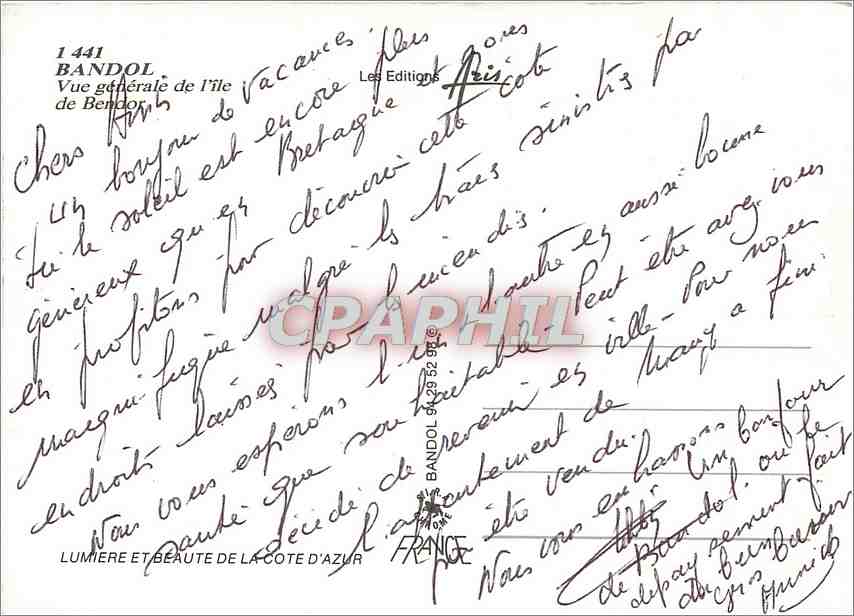 1 441
BANDOL
Vue générale de l'île
de Bendor
Les Editions Aris
Chers Amis
Un bonjour de vacances.
Ici le soleil est encore plus
généreux qu'en Bretagne et nous
en profitons pour découvrir cette côte
magnifique malgré les traces sinistrés par
endroits laissés par l'incendie.
Nous vous espérons l'un et l'autre en aussi bonne
santé que souhaitable - Peut être avez vous
décidé de revenir en ville - Pour nous
l'appartement de Nancy a fini
par être vendu.
Nous vous embrassons
Un bonjour
de Bandol. où le
dépaysement fait
du bien
Gros baisers
CPAPHIL
BANDOL 94 29 52 98 ©
FRANCE
LUMIERE ET BEAUTE DE LA COTE D'AZUR